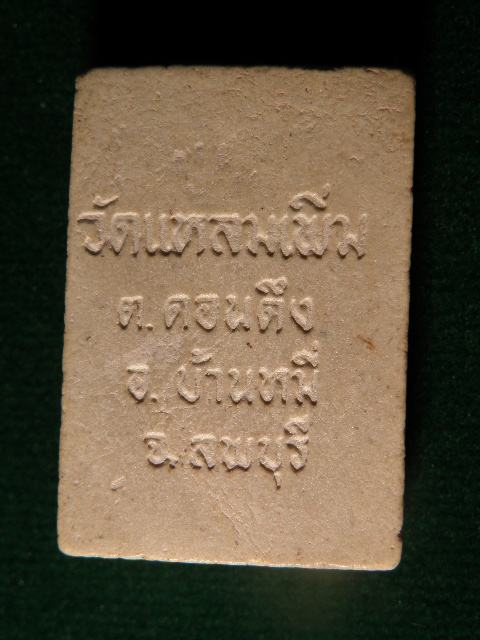 วัดแหลมเพิ่ม
ต. ดอนดึง
อ. บ้านหมี่
จ. ลพบุรี